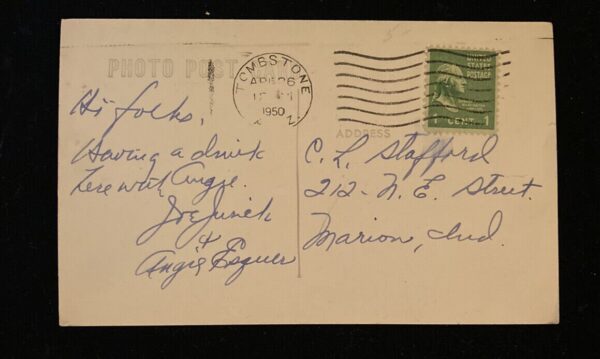 PHOTO POST
TOMBSTONE
APR 26
1950
UNITED
STATES
POSTAGE
1 CENT 1
ADDRESS
Hi folks,
Having a drink
here with Angie.
&
Angie Esquer
C. L. Stafford
212 - N. E. Street.
Marion, Ind.